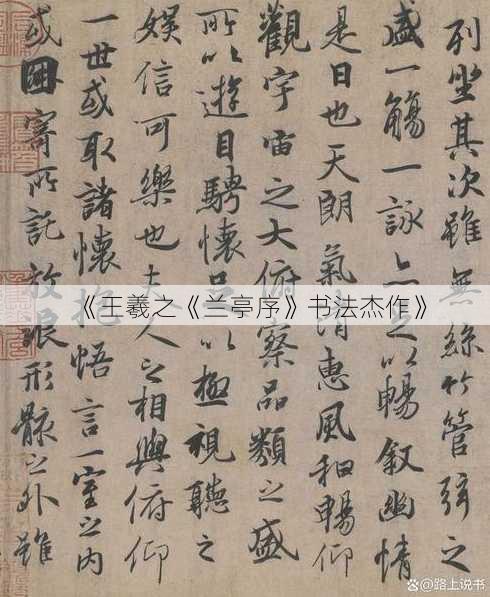 列坐其次雖無絲竹管弦之
盛一觴一詠亦足以暢叙幽情
是日也天朗氣清惠風和暢仰
觀宇宙之大俯察品類之盛
所以遊目騁懷足以極視聽之
娛信可樂也夫人之相與俯仰
一世或取諸懷抱悟言一室之內
或因寄所託放浪形骸之外雖
《王羲之《兰亭序》书法杰作》
@路上说书